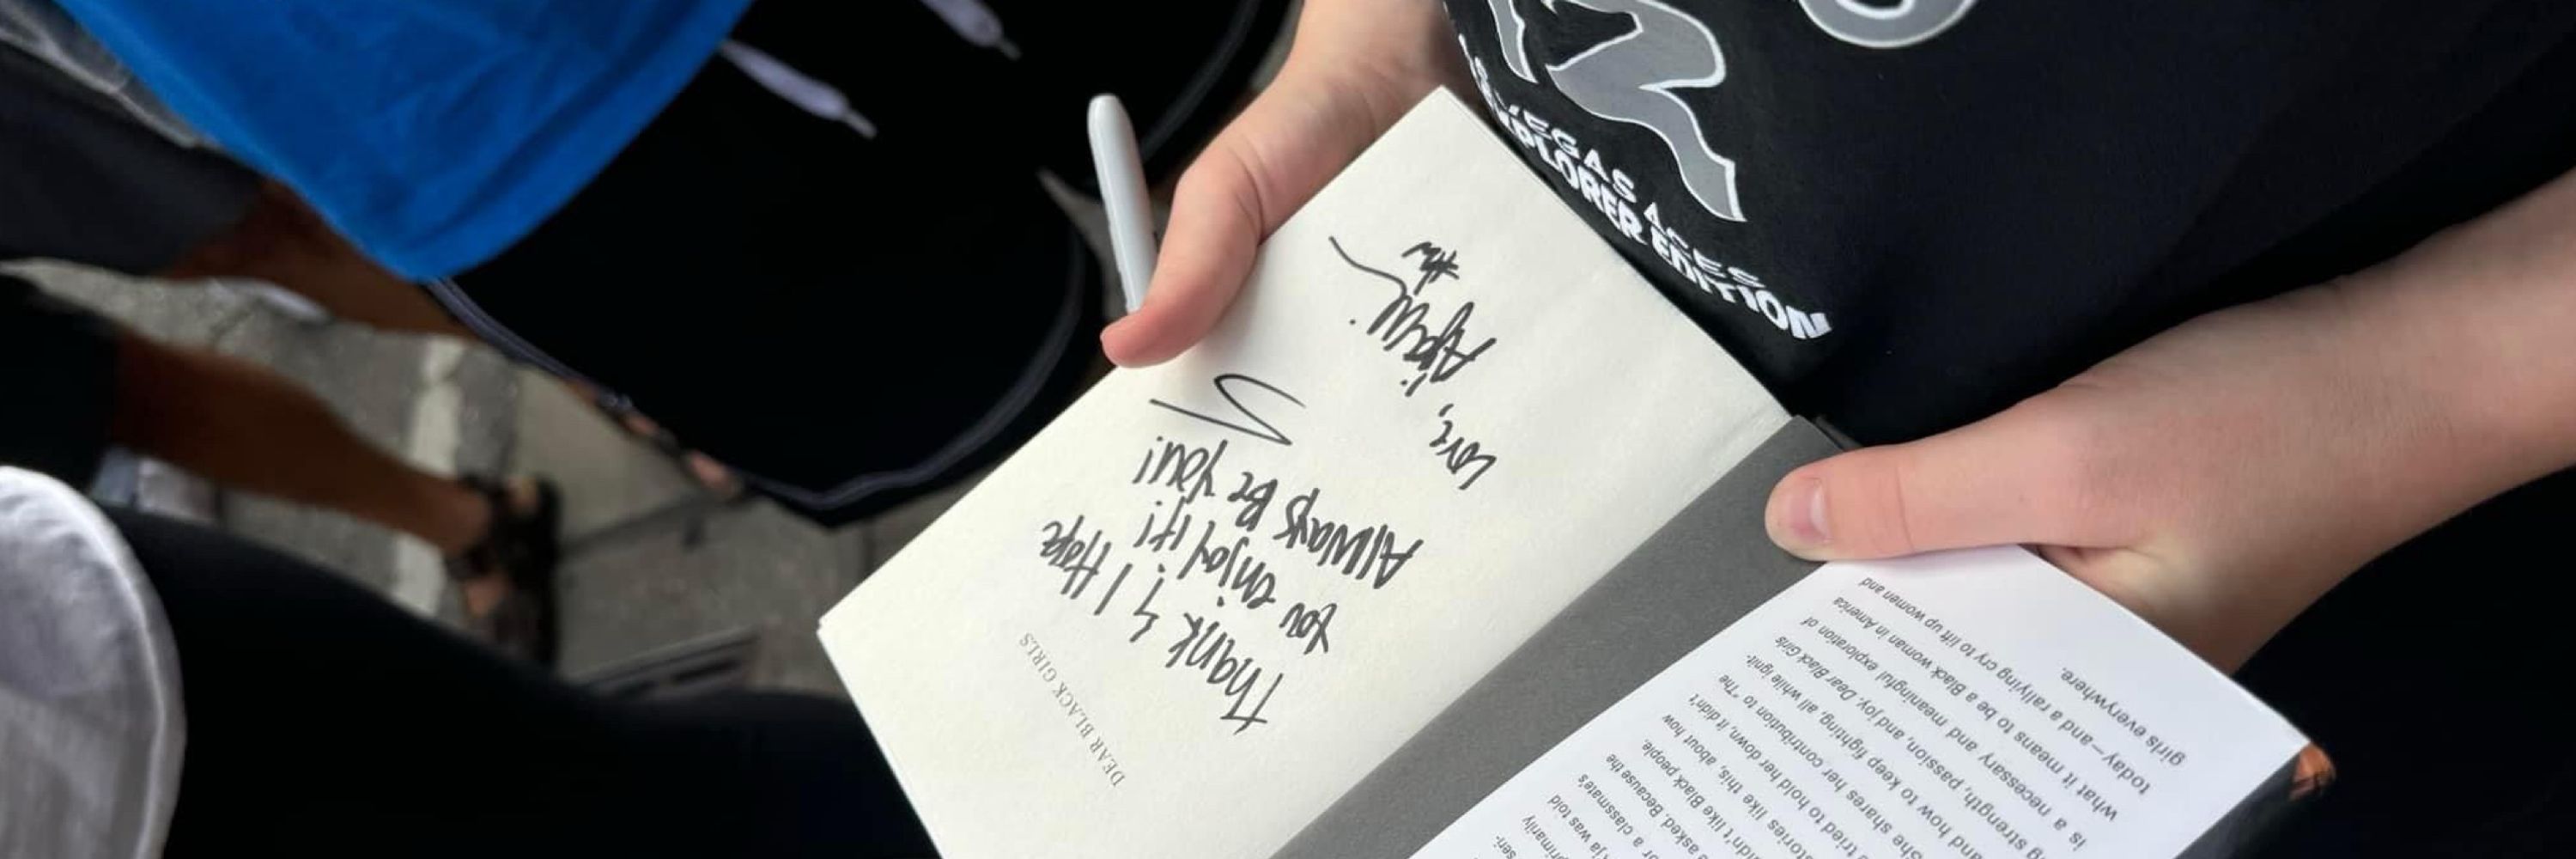 DEAR BLACK GIRLS
Thank & I Hope
you enjoy it!
Always Be you!
Love,
VEGAS ACES
EXPLORER EDITION
seri-
primarily
ja was told
or a classmate's
asked. Because the
idn't like Black people.
tories like this, about how
tried to hold her down, it didn't
She shares her contribution to "The
and how to keep fighting, all while ignit-
strength, passion, and joy. Dear Black Girls
is a necessary and meaningful exploration of
what it means to be a Black woman in America
today—and a rallying cry to lift up women and
girls everywhere.